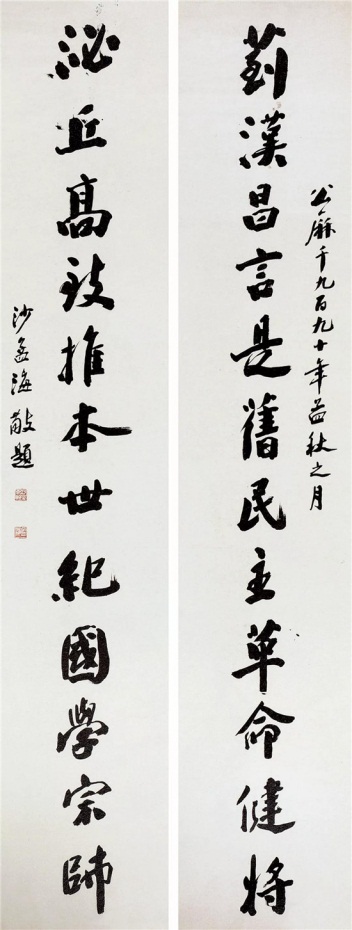 公厤千九百九十年孟秋之月
菿漢昌言是舊民主革命健將
泌丘高致推本世紀國學宗師
沙孟海敬題